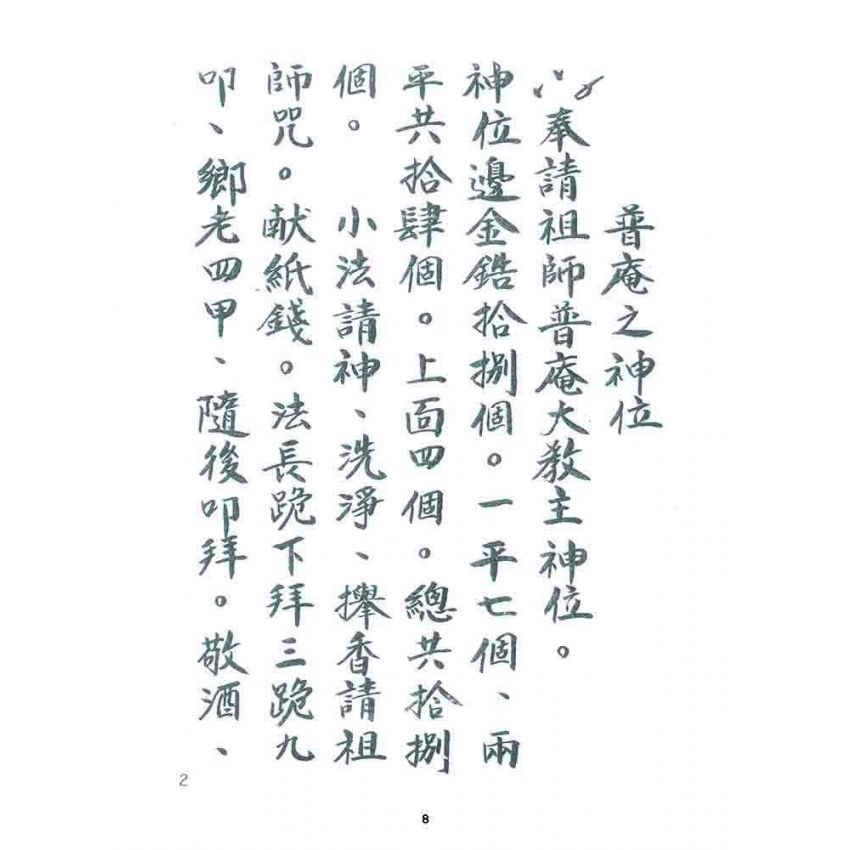 普庵之神位
奉請祖師普庵大教主神位。
神位邊金錯拾捌個。一平七個、兩
平共拾肆個。上面四個。總共拾捌
個。 小法請神、洗淨、攑香請祖
師咒。献紙錢。法長跪下拜三跪九
叩、鄉老四甲、隨後叩拜。敬酒、
2
8